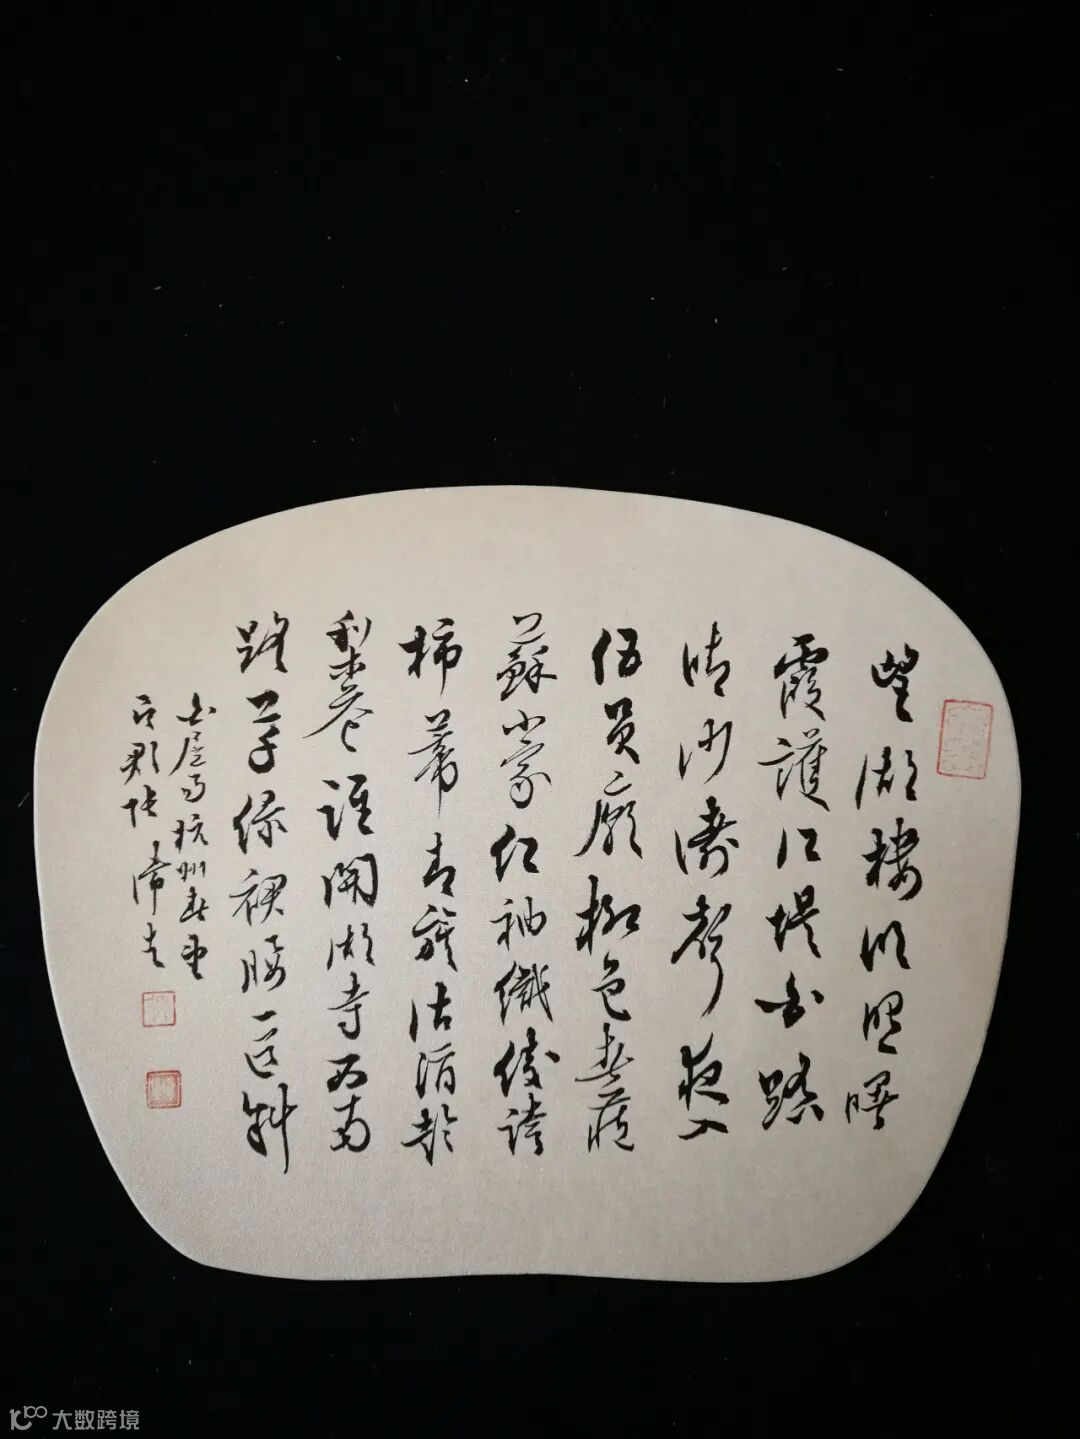 望湖樓明照曙
霞護江堤白踏
晴沙濤聲夜入
伍員廟柳色春藏
蘇小家紅袖織綾誇
柿蒂青旗沽酒趁
梨花誰開湖寺西南
路草綠裙腰一道斜
白居易杭州春望
大数跨境